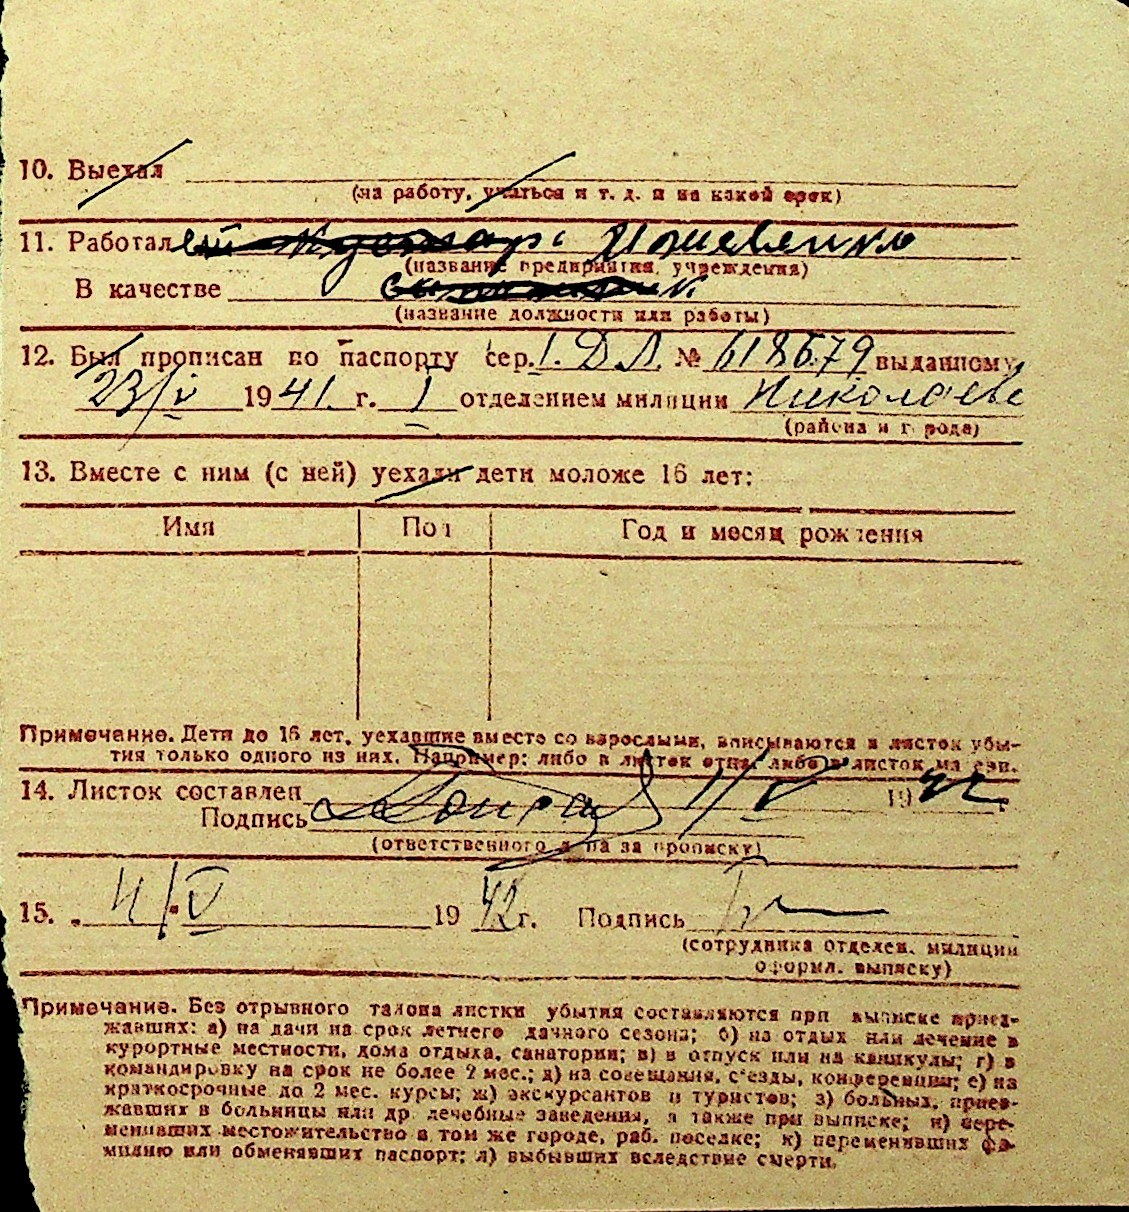 10. Выехал
(на работу, учиться и т. д. и на какой срок)
11. Работал
(название предприятия, учреждения)
В качестве
(название должности или работы)
12. Был прописан по паспорту сер. I. ДЛ. № 618679 выданному
23/V 1941 г. I отделением милиции Николаев
(района и города)
13. Вместе с ним (с ней) уехали дети моложе 16 лет:
Имя Пол Год и месяц рождения
Примечание. Дети до 16 лет, уехавшие вместе со взрослыми, вписываются в листок убы-
тия только одного из них. Например: либо в листок отца, либо в листок матери.
14. Листок составлен 1/V 1942 г.
Подпись
(ответственного лица за прописку)
15. „ 4/V 1942 г. Подпись
(сотрудника отделен. милиции
оформл. выписку)
Примечание. Без отрывного талона листки убытия составляются при выписке приез-
жавших: а) на дачи на срок летнего дачного сезона; б) на отдых или лечение в
курортные местности, дома отдыха, санатории; в) в отпуск или на каникулы; г) в
командировку на срок не более 2 мес.; д) на совещания, съезды, конференции; е) на
краткосрочные до 2 мес. курсы; ж) экскурсантов и туристов; з) больных, приез-
жавших в больницы или др. лечебные заведения, а также при выписке; и) пере-
менивших местожительство в том же городе, раб. поселке; к) переменивших фа-
милию или обменявших паспорт; л) выбывших вследствие смерти.